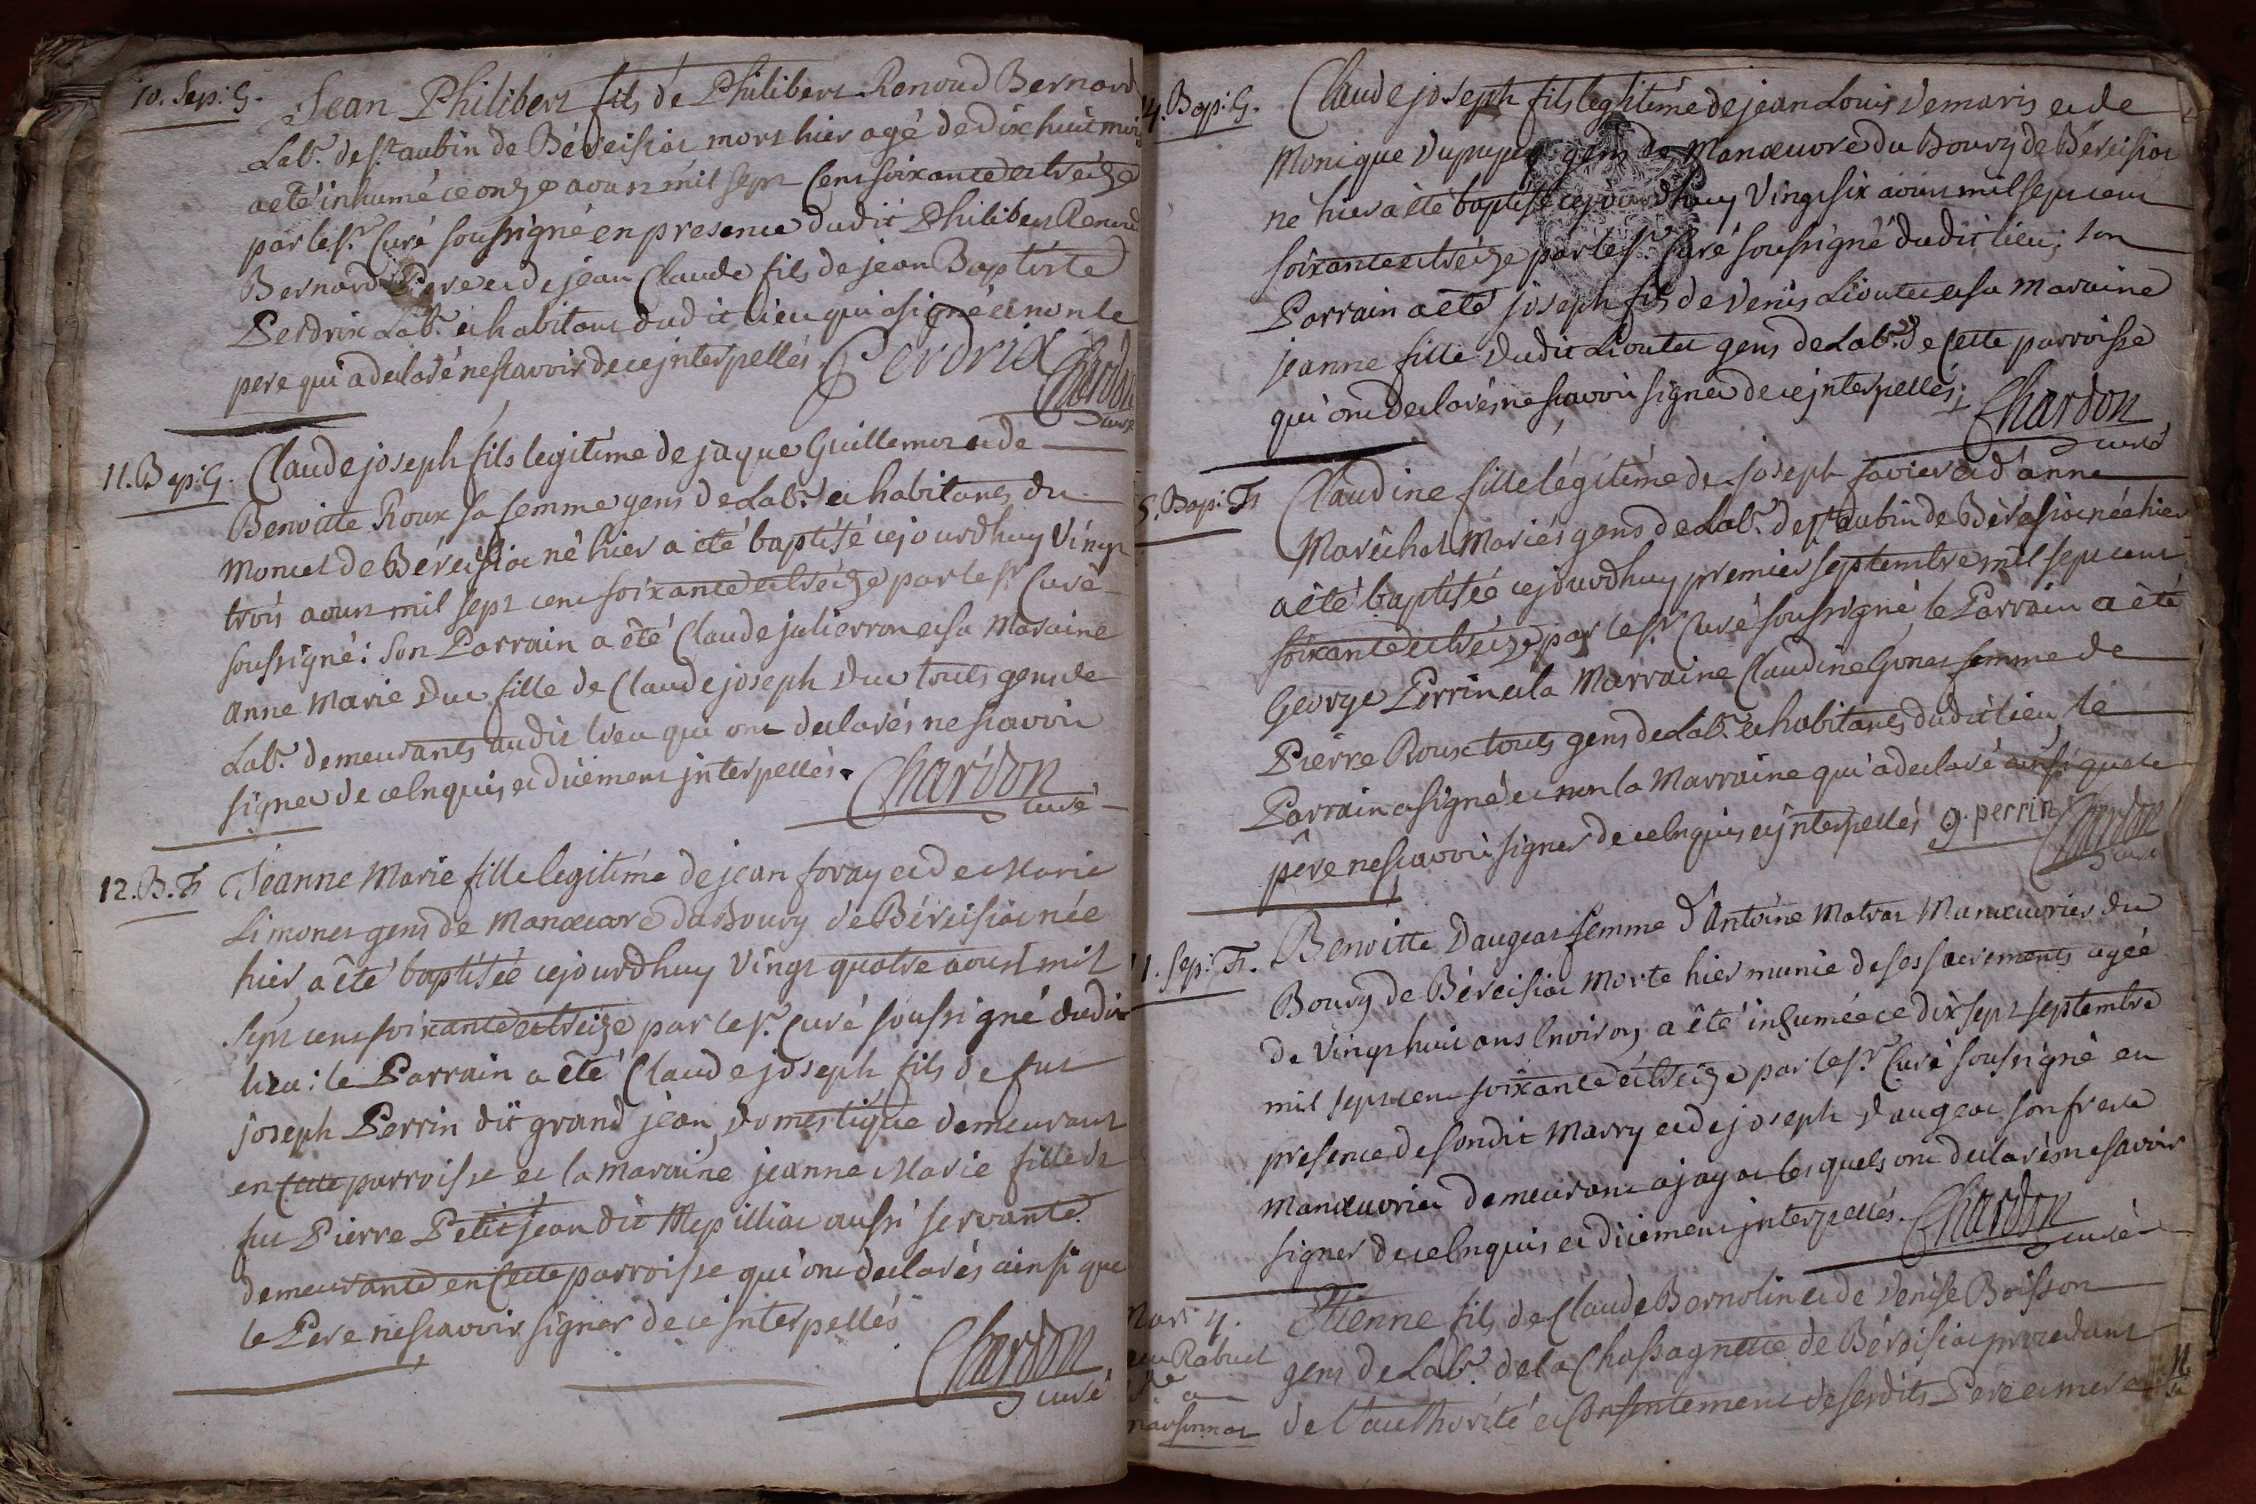 10. Sep: G.
Jean Philibert fils de Philibert Renoud Bernard
Lab.r de St aubin de Béreisiat mort hier agé de dix huit mois
a été inhumé ce onze aoust mil sept Cent soixante et treize
par le Sr Curé soussigné en presence dudit Philibert Renoud
Bernard Pere et de jean Claude fils de jean Baptiste
Perdrix Lab.r et habitant dudit lieu qui a signé et non le
pere qui a declaré ne scavoir de ce jnterpellés. Perdrix Chardon
curé
11. Bap: G. Claude joseph fils legitime de jaque Guillemot et de
Benoitte Roux sa femme gens de Lab.r et habitants du
Moncet de Béreisiat né hier a été baptisé cejourdhuy vingt
trois aoust mil sept cent soixante et treize par le Sr Curé
soussigné: son Parrain a été Claude julierron et sa Maraine
anne Marie Duc fille de Claude joseph Duc touts gens de
Lab.r demeurants audit lieu qui ont declarés ne scavoir
signer de ce enquis et düement jnterpellés. Chardon
curé
12. B. F. Jeanne Marie fille legitime de jean foray et de Marie
Limonet gens de Manœuvre du Bourg de Béreisiat née
hier a été baptisée cejourdhuy vingt quatre aoust mil
sept cent soixante et treize par le Sr. Curé soussigné dudit
lieu: le Parrain a été Claude joseph fils de fut
joseph Perrin dit grand jean, domestique demeurant
en cette parroisse et la maraine jeanne Marie fille de
fut Pierre Petitjean dit Mepilliat aussi servante
demeurante en Cette parroisse qui ont declarés ainsi que
le Pere ne scavoir signer de ce jnterpellés
Chardon
curé
4. Bap: G. Claude joseph fils legitime de jean Louis Demaris et de
Monique Dupupet gens de Manœuvre du Bourg de Béreisiat
né hier a été baptisé cejourdhuy vingt six aoust mil sept cent
soixante et treize par le Sr. Curé soussigné dudit lieu; son
Parrain a été joseph fils de Denis Lioutet et sa Maraine
jeanne fille dudit Lioutet gens de Lab.r de Cette parroisse
qui ont declarés ne scavoir signer de ce jnterpellés; Chardon
curé
5. Bap: F. Claudine fille légitime de joseph favier et d'anne
Maréchal Mariés gens de Lab.r de St aubin de Béreisiat née hier
a été baptisée cejourdhuy premier septembre mil sept cent
soixante et treize par le Sr. Curé soussigné, le Parrain a été
George Perrin et la Marraine Claudine Gonet femme de
Pierre Roux touts gens de Lab.r et habitants dudit lieu, le
Parrain a signé et non la Marraine qui a declaré ainsi que le
pere ne scavoir signer de ce enquis et jnterpellés g. perrin Chardon
curé
1. Sep: F. Benoitte Daugeat femme d'Antoine Matrat Manœuvrier du
Bourg de Béreisiat Morte hier munie de ses sacrements agée
de vingt huit ans Environ, a été inhumée ce dix sept septembre
mil sept cent soixante et treize par le Sr. Curé soussigné en
presence de sondit Marry et de joseph Daugeat son frere
Manœuvrier demeurant a jayat les quels ont declarés ne scavoir
signer de ce enquis et düement jnterpellés. Chardon
curé
Mari 4. Etienne fils de Claude Bernolin et de Denise Boisson
Rabuel gens de Lab.r de la Chassagnette de Béreisiat procedant
a
marsonnat de l'authorité et consentement desesdits Pere et mere